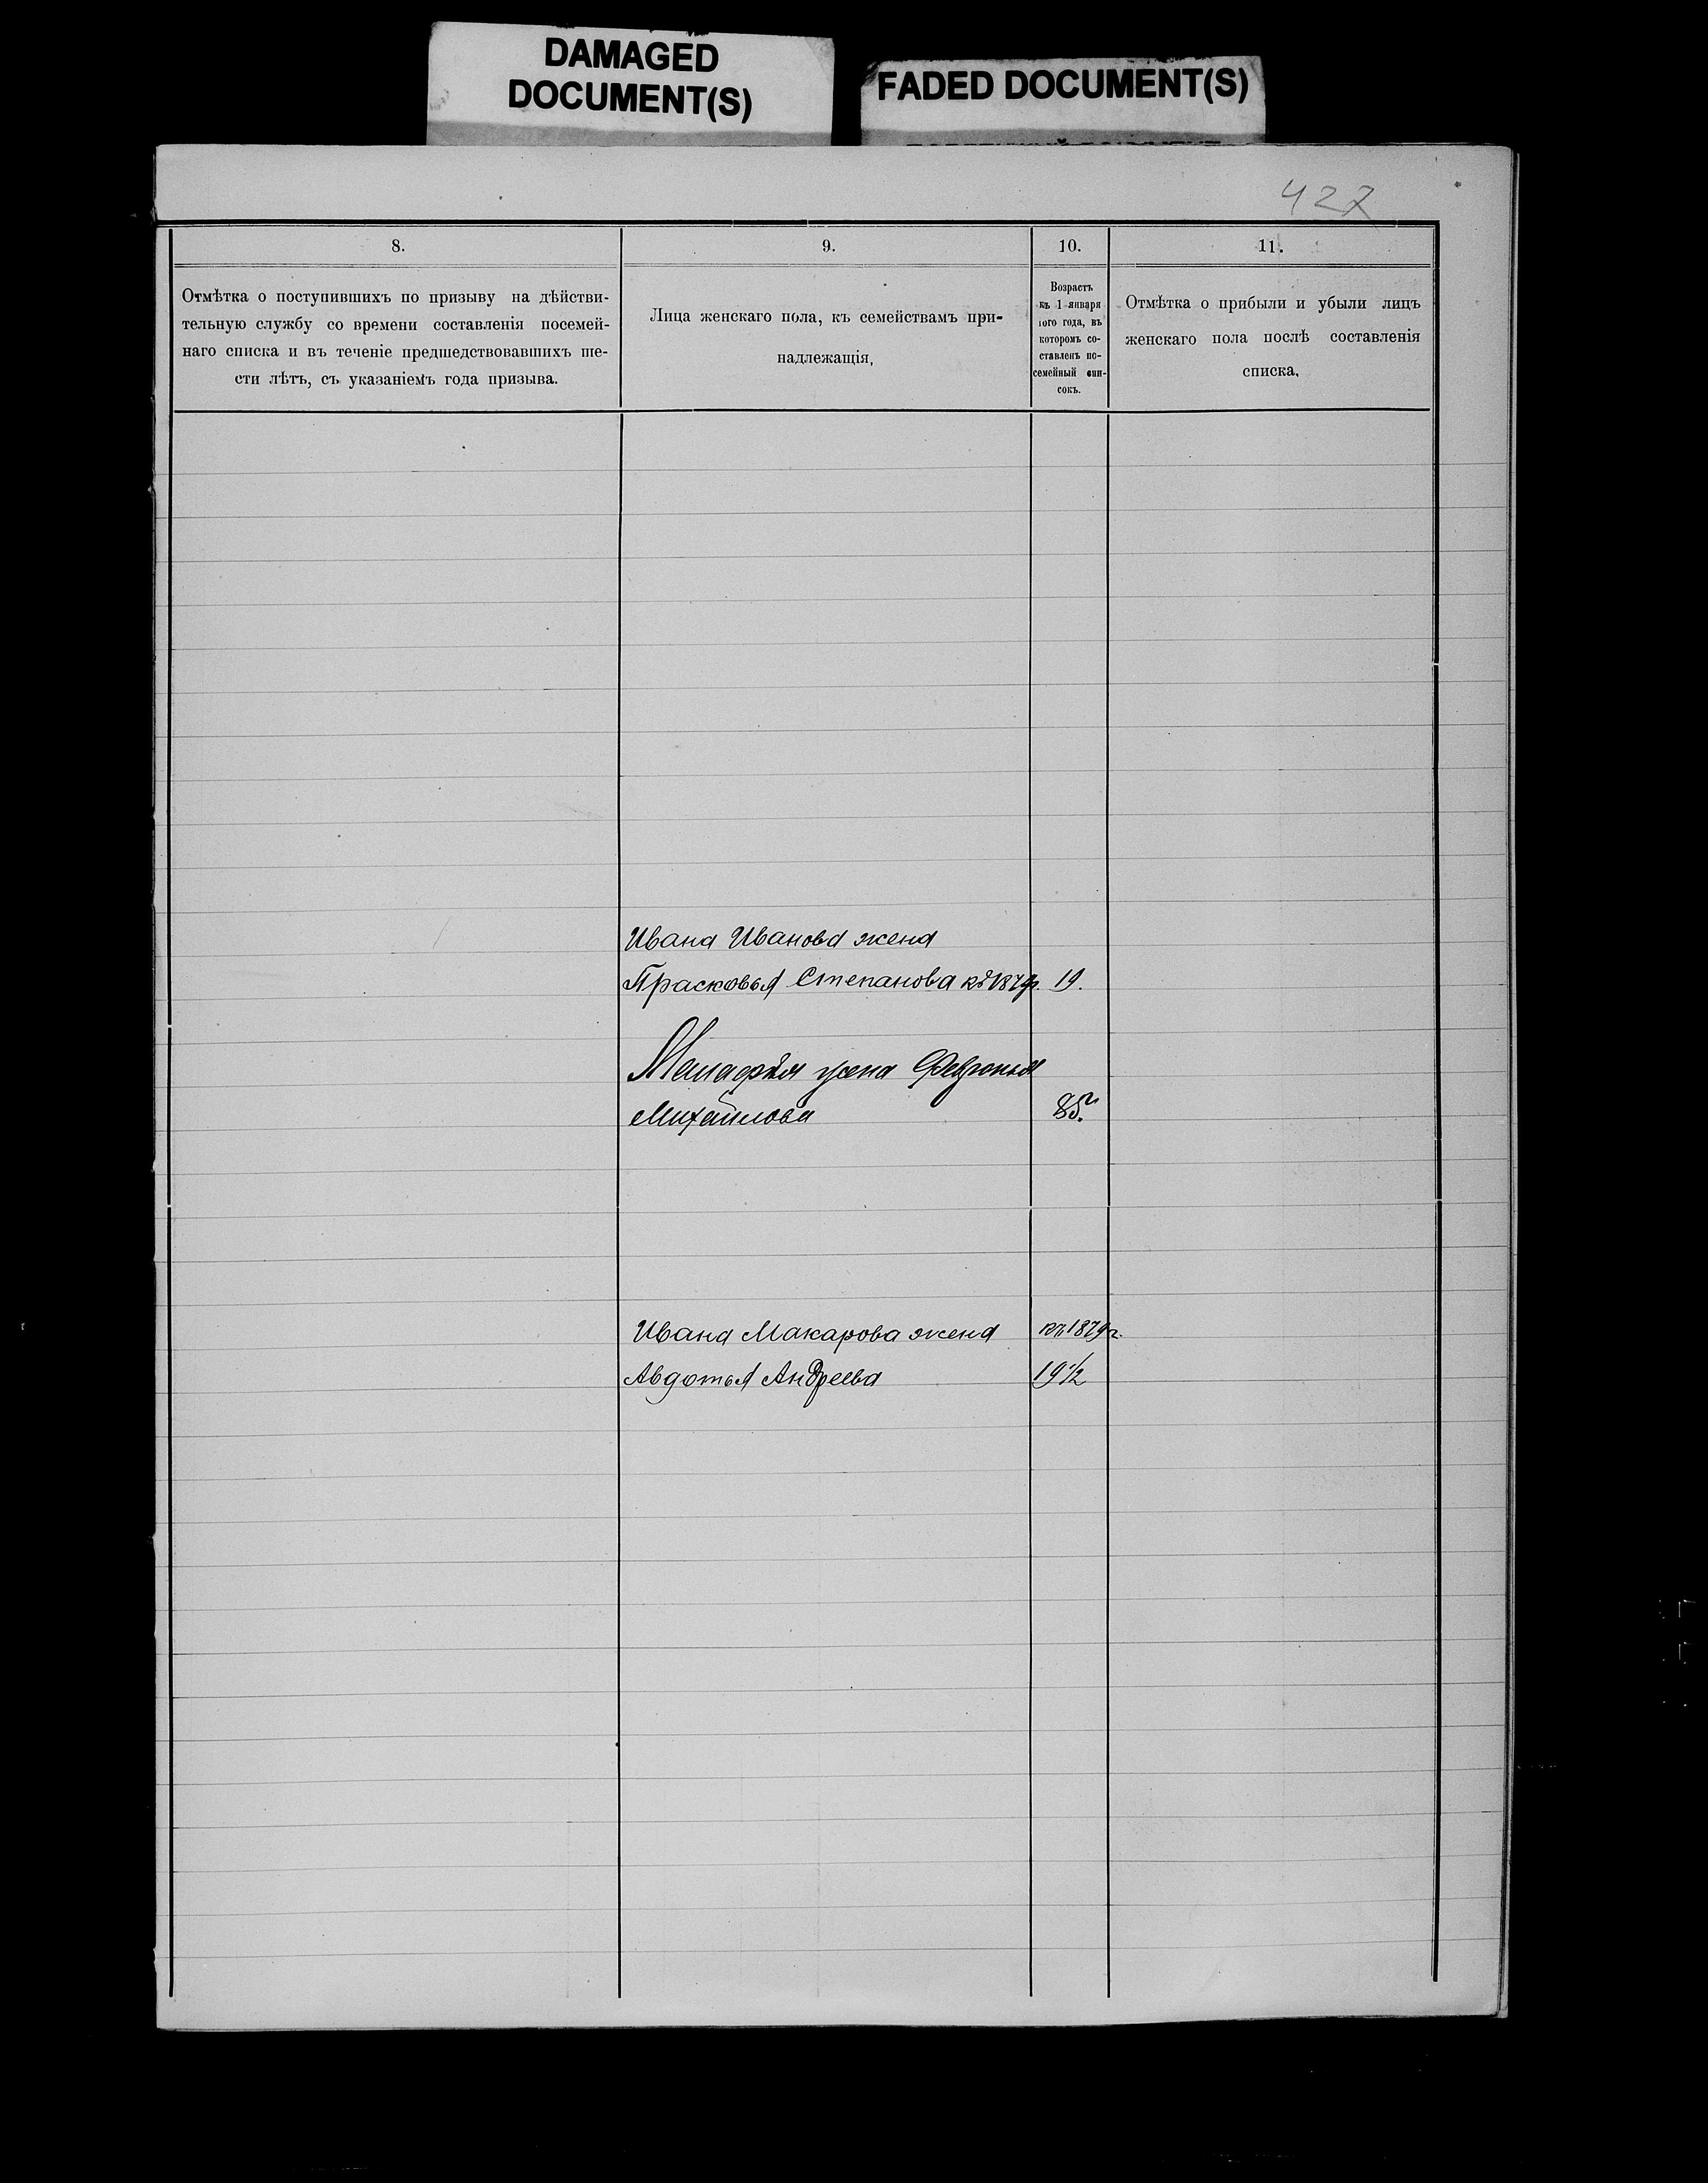 DAMAGED
DOCUMENT(S)
FADED DOCUMENT(S)
427
8.
9.
10.
11.
Отмѣтка о поступившихъ по призыву на дѣйстви-
тельную службу со времени составленія посемей-
наго списка и въ теченіе предшедствовавшихъ ше-
сти лѣтъ, съ указаніемъ года призыва.
Лица женскаго пола, къ семействамъ при-
надлежащія,
Возрастъ
къ 1 января
того года, въ
которомъ со-
ставленъ по-
семейный спи-
сокъ.
Отмѣтка о прибыли и убыли лицъ
женскаго пола послѣ составленія
списка,
Ивана Иванова жена
Прасковья Степанова къ 1879г. 19.
жена Февронья
Михайлова 85
Ивана Макарова жена къ 1879г.
Авдотья Андреева 19 1/2